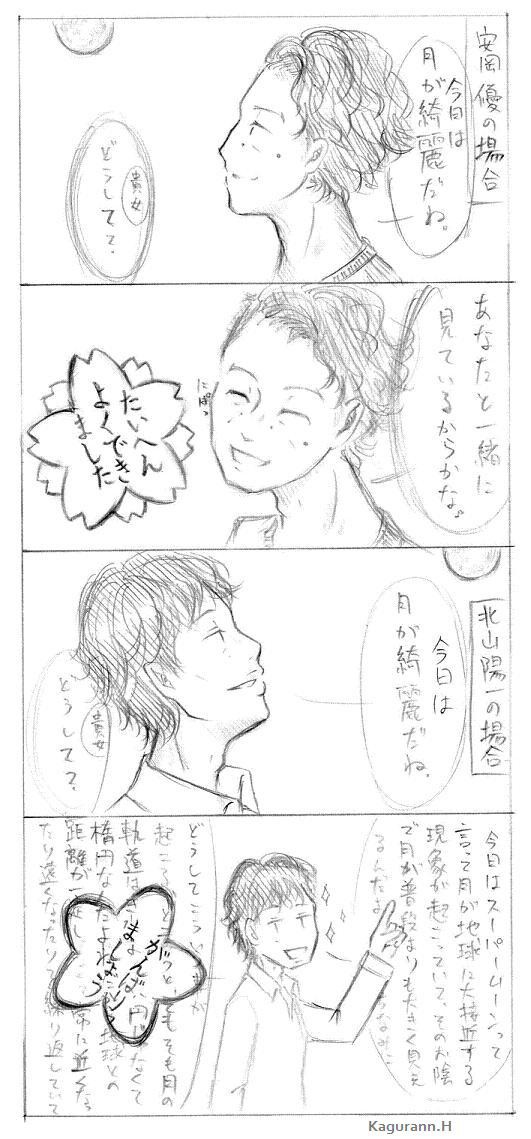 安岡 優の場合
今日は
月が綺麗だね。
貴女
どうして？
あなたと一緒に
見ているからかな。
にぱっ
たいへん
よくでき
ました
北山陽一の場合
今日は
月が綺麗だね。
貴女
どうして？
今日はスーパームーンって
言って月が地球に大接近する
現象が起こっていて、そのお陰
で月が普段よりも大きく見え
るんだよ
どうしてこうい
起こる
そもそも月の
軌道は
円じゃなくて
楕円なんだよね
地球との
距離が一定
常に近くな
ったり遠くなったりって繰り返していて
がんば
りま
しょう
Kagurann.H